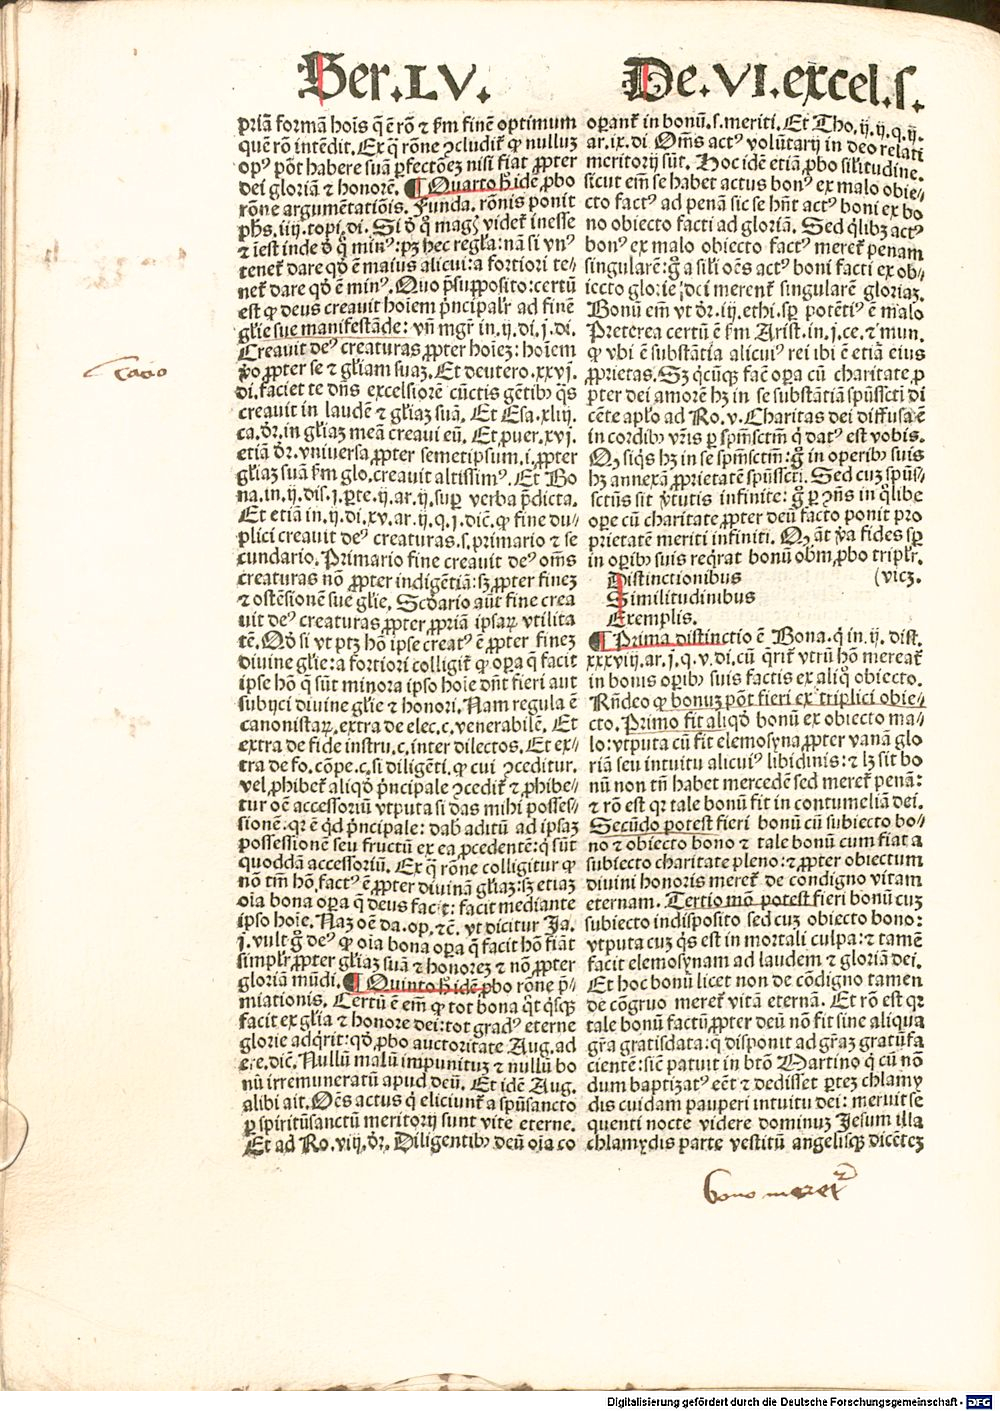 Ser.LV.
De.VI.excel.s.
priā formā hoīs q̄ ē rō ⁊ ẜm finē optimum
quē rō intēdit. Ex q̄ rōne ꝯcludit᷑ ꝙ nulluȝ
opꝰ pōt habere suā ꝑfectōeȝ nisi fiat ꝓpter
dei gloriā ⁊ honorē. ¶ Quarto h̄ idē ꝓbo
rōne argumētatiōis. Funda. rōnis ponit
ꝓhs. iij. topi. di. Si ꝺ̓ q̊ magꝭ videt᷑ inesse
⁊ īest inde ꝺ̓ q̊ minꝰ: pȝ hec regl̓a: nā si vnꝰ
tenet᷑ dare qd̓ ē maius alicui: a fortiori te⸗
net᷑ dare qd̓ ē minꝰ. Quo p̄supposito: certū
est ꝙ deus creauit hoiem p̓ncipalr̓ ad finē
gl̓ie sue manifestāde: vn̄ mgr̓ in. ij. di. j. di.
Creauit deꝰ creaturas ꝓpter hoieȝ: hoiem
v̓o ꝓpter se ⁊ gl̓iam suaȝ. Et deutero. xxvj.
di. faciet te dn̄s excelsiorē cūctis gētibꝰ q̄s
creauit in laudē ⁊ gl̓iaȝ suā. Et Esa. xliij.
ca. ꝺ̓r. in gl̓iaȝ meā creaui eū. Et ꝓuer. xvj.
etiā ꝺ̓r. vniuersa ꝓpter semetipsum. i. ꝓpter
gl̓iaȝ suā ẜm glo. creauit altissimꝰ. Et Bo
na. in. ij. dis. j. ꝑte. ij. ar. ij. suꝑ verba p̄dicta.
Et etiā in. ij. di. xv. ar. ij. q. j. dic̄. ꝙ fine du⸗
plici creauit deꝰ creaturas. s. primario ⁊ se
cundario. Primario fine creauit deꝰ om̄s
creaturas nō ꝓpter indigētiā: sȝ ꝓpter fineȝ
⁊ ostēsionē sue gl̓ie. Scd̓ario aūt fine crea
uit deꝰ creaturas ꝓpter ꝓpriā ipsaꝝ vtilita
tē. Qd̓ si vt ptȝ hō ipse creatꝰ ē ꝓpter fineȝ
diuine gl̓ie: a fortiori colligit᷑ ꝙ oꝑa q̄ facit
ipse hō q̄ sūt minora ipso hoie dn̄t fieri aut
subijci diuine gl̓ie ⁊ honori. Nam regula ē
canonistaꝝ. extra de elec. c. venerabilē. Et
extra de fide instru. c. inter dilectos. Et ex⸗
tra de fo. cōpe. c. si diligēti. ꝙ cui ꝯceditur.
vel ꝓhibet᷑ aliqd̓ p̓ncipale ꝯcedit᷑ ⁊ ꝓhibe⸗
tur oē accessoriū vtputa si das mihi posses⸗
sionē: qr̓ ē qd̓ p̓ncipale: dabꝭ aditū ad ipsaȝ
possessionē seu fructū ex ea ꝓcedentē: q̄ sūt
quoddā accessoriū. Ex q̄ rōne colligitur ꝙ
nō tm̄ hō factꝰ ē ꝓpter diuinā gl̓iaȝ: sȝ etiaȝ
oīa bona oꝑa q̄ deus facit: facit mediante
ipso hoie. Naȝ oē da. op. ⁊c̄. vt dicitur Ja.
j. vult g̊ deꝰ ꝙ oīa bona oꝑa q̄ facit hō fiāt
simplr̓ ꝓpter gl̓iaȝ suā ⁊ honoreȝ ⁊ nō ꝓpter
gloriā mūdi. ¶ Quinto h̄ idē ꝓbo rōne p̄⸗
miationis. Certū ē em̄ ꝙ tot bona q̄t q̄sꝙ
facit ex gl̓ia ⁊ honore dei: tot gradꝰ eterne
glorie adq̄rit: qd̓ ꝓbo auctoritate Aug. ad
ere. dic̄. Nullū malū impunituȝ ⁊ nullū bo
nū irremuneratū apud deū. Et idē Aug.
alibi ait. Oēs actus q̄ eliciunt᷑ a spūsancto
ꝑ spiritūsanctū meritorij sunt vite eterne.
Et ad Ro. viij. ꝺ̓r. Diligentibꝰ deū oīa co
oꝑant᷑ in bonū. s. meriti. Et Tho. ij. ij. q. ij.
ar. ix. di Om̄s actꝰ volūtarij in deo relati
meritorij sūt. Hoc idē etiā ꝓbo sil̓itudine.
sicut em̄ se habet actus bonꝰ ex malo obie⸗
cto factꝰ ad penā sic se hn̄t actꝰ boni ex bo
no obiecto facti ad gloriā. Sed q̄libꝫ actꝰ
bonꝰ ex malo obiecto factꝰ meret᷑ penam
singularē: g̊ a sil̓i oēs actꝰ boni facti ex ob⸗
iecto glorie dei merent᷑ singularē gloriaȝ.
Bonū em̄ vt ꝺ̓r. iij. ethi. sꝑ potētiꝰ ē malo
Preterea certū ē ẜm Arist. in. j. ce. ⁊ mun.
ꝙ vbi ē substātia alicuiꝰ rei ibi ē etiā eius
ꝓprietas. Sȝ q̄cūqꝫ fac̄ oꝑa cū charitate ꝓ
pter dei amorē hȝ in se substātiā spūsscti di
cēte apl̓o ad Ro. v. Charitas dei diffusa ē
in cordibꝰ vr̄is ꝑ spm̄sctm̄ q̓ datꝰ est vobis.
Qȝ siq̓s hȝ in se spm̄sctm̄: g̊ in operibꝰ suis
hȝ annexā ꝓprietatē spūsscti. Sed cuȝ spūs⸗
sctūs sit v̓tutis infinite: g̊ ꝑ ꝯn̄s in q̄libe
oꝑe cū charitate ꝓpter deū facto ponit pro
prietatē meriti infiniti. Qȝ āt v̓a fides sꝑ
in oꝑibꝰ suis req̓rat bonū obm̄ ꝓbo triplr̓.
Distinctionibus (vicȝ.
Similitudinibus
Exemplis.
¶ Prima distinctio ē Bona. q̓ in. ij. dist.
xxxviij. ar. j. q. v. di. cū q̄rit᷑ vtrū hō mereat᷑
in bonis oꝑibꝰ suis factis ex aliq̊ obiecto.
Rn̄deo ꝙ bonuȝ pōt fieri ex triplici obie⸗
cto. Primo fit aliqd̓ bonū ex obiecto ma⸗
lo: vtputa cū fit elemosyna ꝓpter vanā glo
riā seu intuitu alicuiꝰ libidinis: ⁊ lȝ sit bo
nū non tn̄ habet mercedē sed meret᷑ penā:
⁊ rō est qr̓ tale bonū fit in contumeliā dei.
Secūdo potest fieri bonū cū subiecto bo⸗
no ⁊ obiecto bono ⁊ tale bonū cum fiat a
subiecto charitate pleno: ⁊ ꝓpter obiectum
diuini honoris meret᷑ de condigno vitam
eternam. Tertio mō potest fieri bonū cuȝ
subiecto indisposito sed cuȝ obiecto bono:
vtputa cuȝ q̓s est in mortali culpa: ⁊ tamē
facit elemosynam ad laudem ⁊ gloriā dei.
Et hoc bonū licet non de cōdigno tamen
de cōgruo meret᷑ vitā eternā. Et rō est qr̓
tale bonū factū ꝓpter deū nō fit sine aliqua
gr̄a gratisdata: q̄ disponit ad gr̄aȝ gratūfa
cientē: sic̄ patuit in btō Martino q̓ cū nō
dum baptizatꝰ eēt ⁊ dedisset ꝑteȝ chlamy
dis cuidam pauperi intuitu dei: meruit se
quenti nocte videre dominuȝ Jesum illa
chlamydis parte vestitū angelisqꝫ dicēteȝ
Digitalisierung gefördert durch die Deutsche Forschungsgemeinschaft - DFG